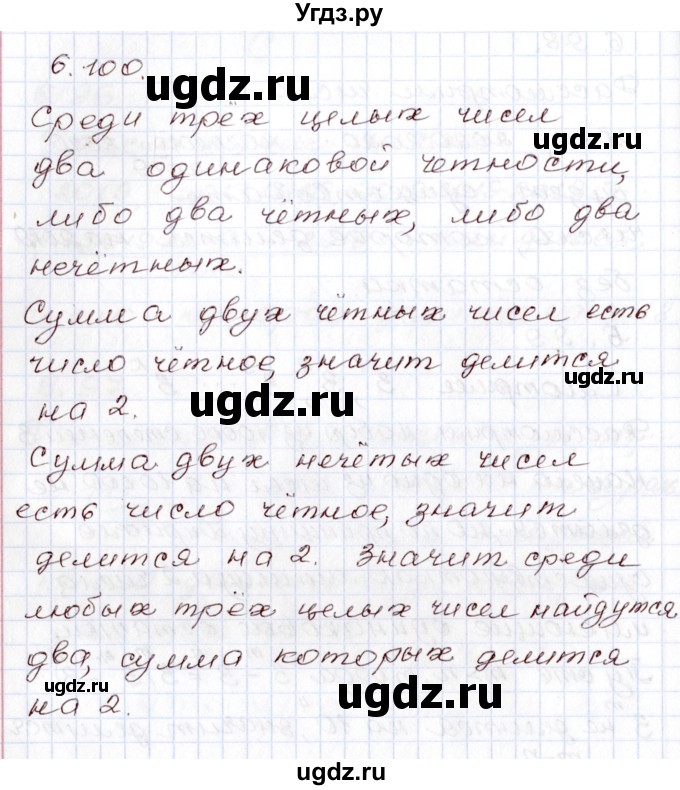 Угдз.ру
6.100.
ugdz.ru
ugdz.ru
Среди трёх целых чисел
два одинаковой четности,
либо два чётных, либо два
нечётных.
Сумма двух чётных чисел есть
число чётное, значит делится
на 2.
ugdz.ru
ugdz.ru
Сумма двух нечётых чисел
есть число чётное, значит
делится на 2. Значит среди
любых трёх целых чисел найдутся
два, сумма которых делится
на 2.
ugdz.ru
ugdz.ru
ugdz.ru